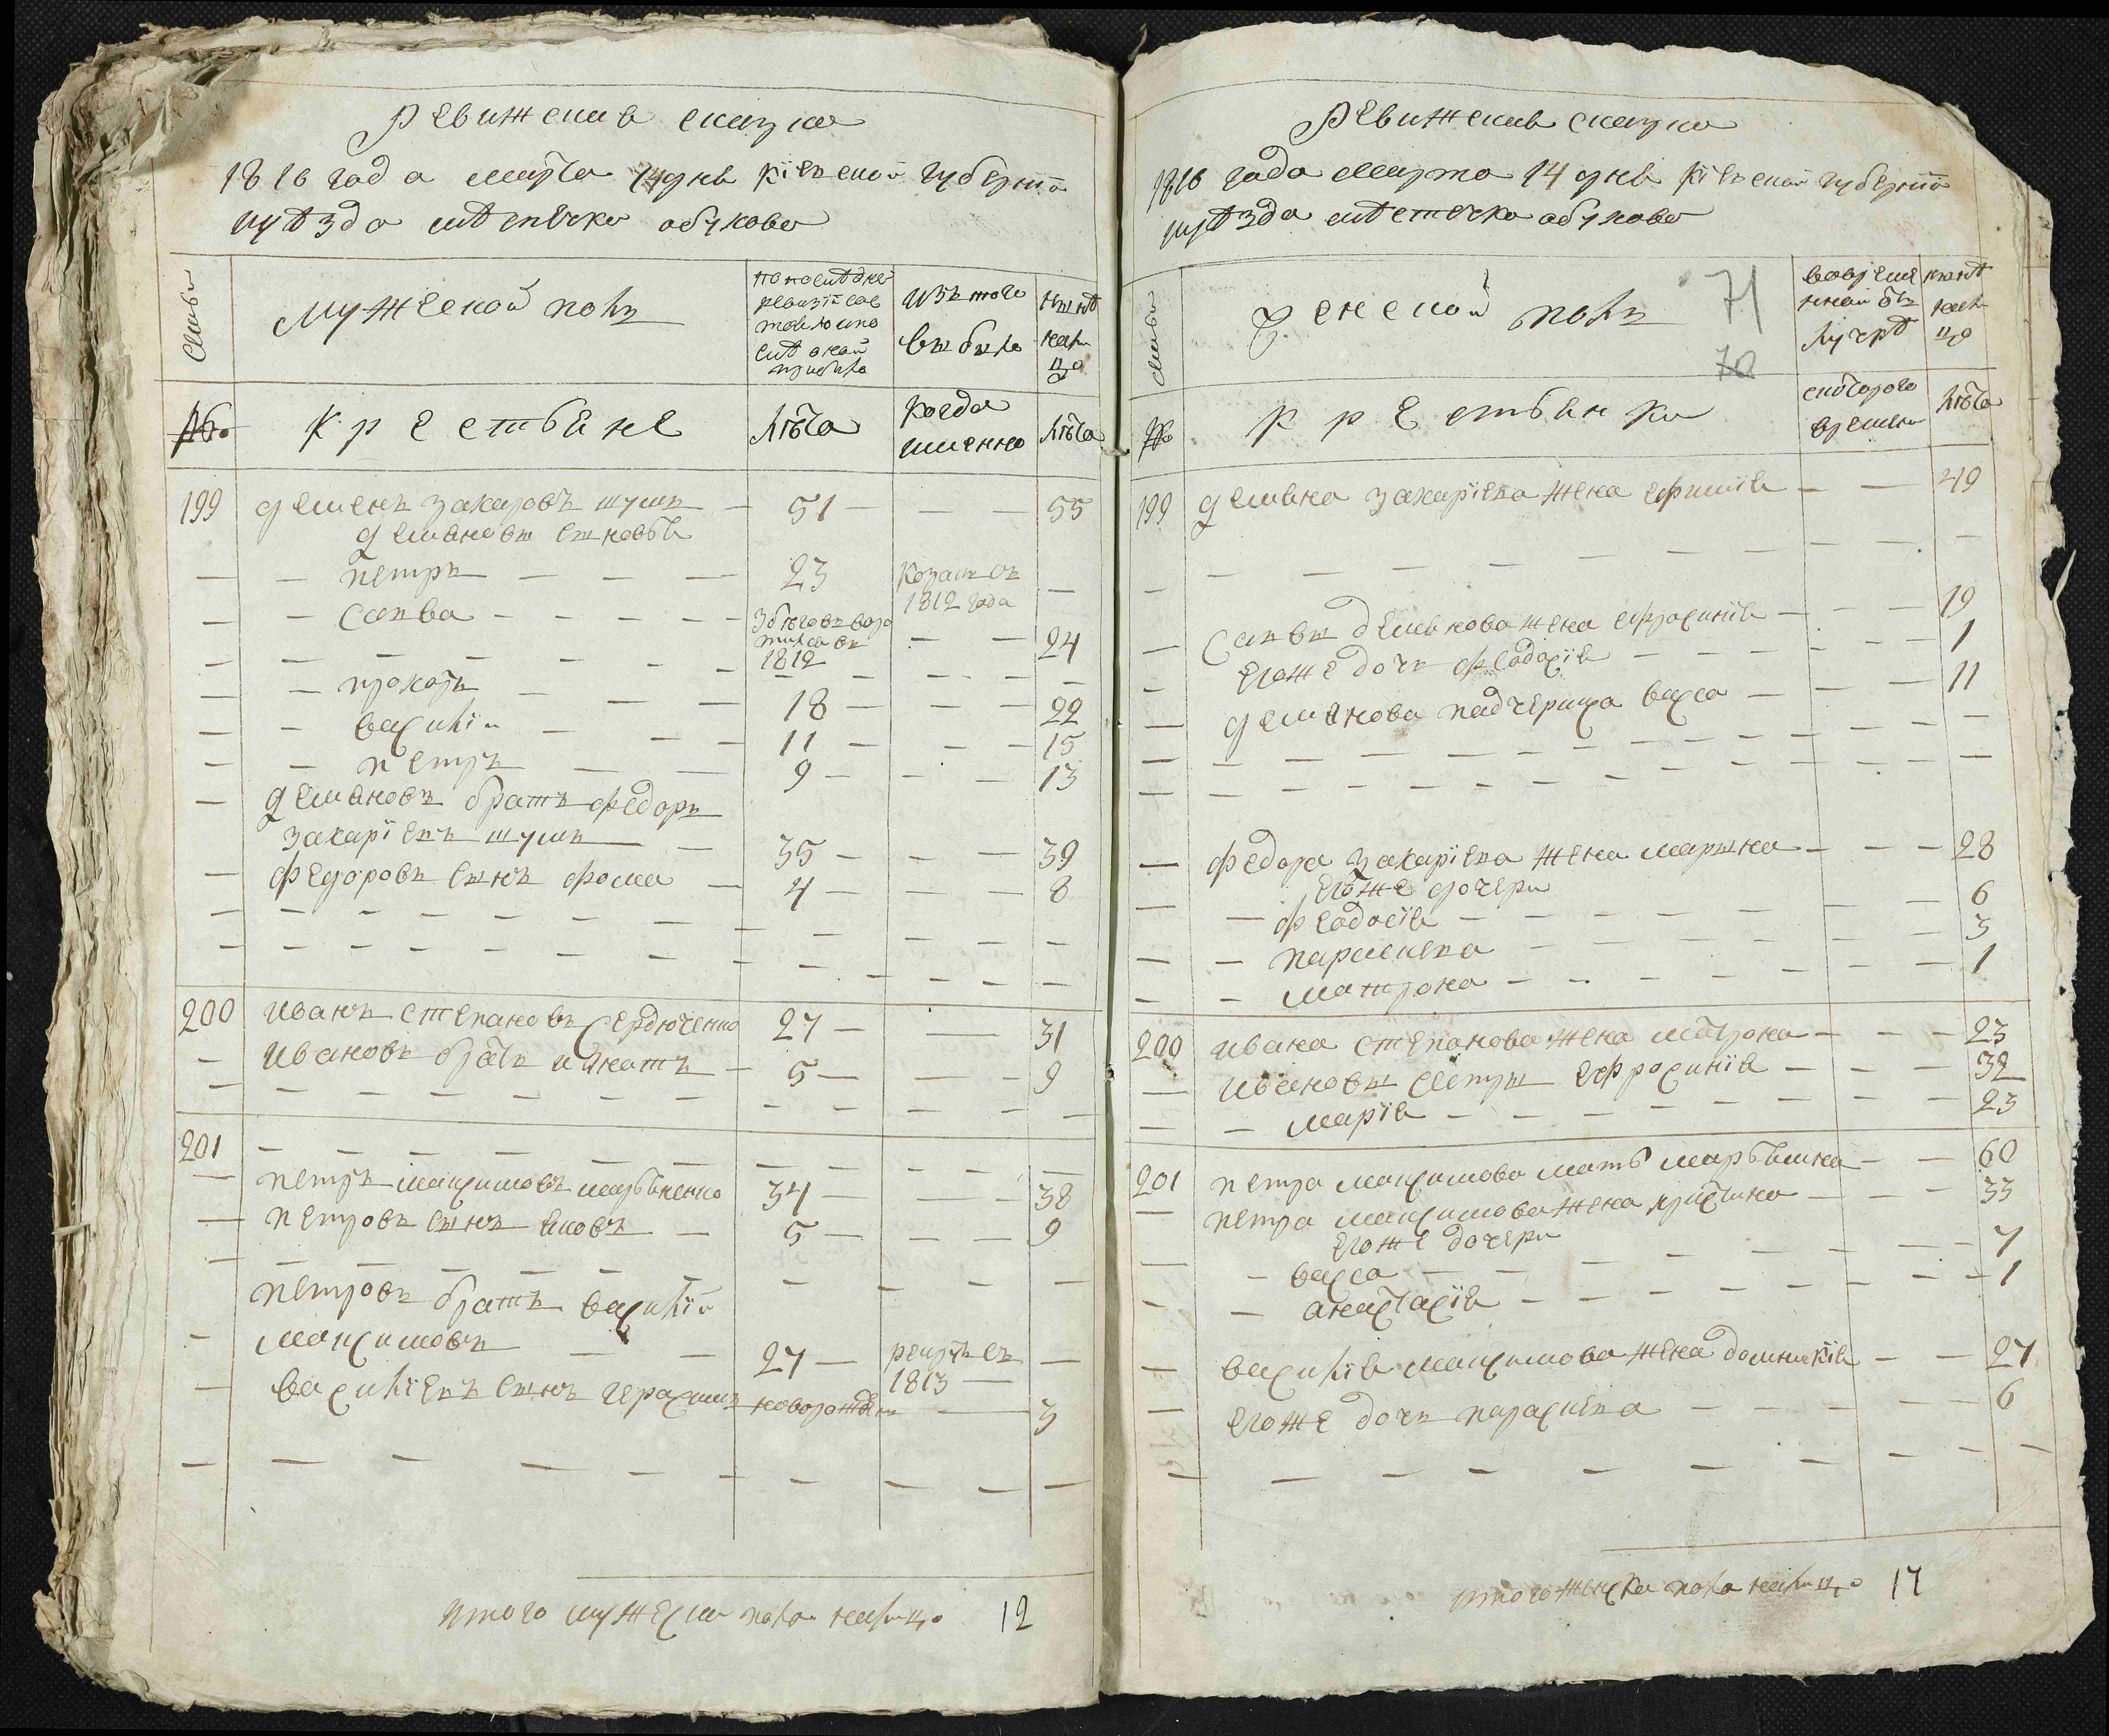 Ревижская сказка
1816 года марта 14 дня Кіевской губерніи
уѣзда мѣстечка обухова
Семьи
мужеской полъ
по последней ревизіи состояло и после оной прибыло
изъ того выбыло
ныне на лицо
№
Крестьяне
лѣта
когда именно
лѣта
199 демянъ захаровъ шумъ — 51 — — — 55
демяновы сыновья
— — петръ — — — 23 козакъ съ 1812 года —
— — савва — — — збѣговъ воротился въ 1812 — — 24
— — прокопъ — — — 18 — — — 22
— — василій — — — 11 — — — 15
— — петръ — — 9 — — — 13
— демяновъ братъ федоръ
захаріевъ шумъ — 35 — — — 39
— федоровъ сынъ фома — 4 — — — 8
200 иванъ степановъ Сердюченко 27 — — 31
— ивановъ братъ игнатъ — 5 — — — 9
201 — — — — —
— петръ максимовъ 34 — — — 38
— петровъ сынъ яковъ — 5 — — — 9
петровъ братъ василій
— максимовъ — — 27 — рекрутъ съ 1813 — —
— василіевъ сынъ герасимъ новорожденъ — 3
итого мужеска пола налицо 12
Ревижская сказка
1816 года марта 14 дня Кіевской губерніи
уѣзда мѣстечка обухова
Семьи
Женской полъ
71
70
во временной отлучкѣ
ныне на лицо
№
Крестьянки
с которого времени
лѣта
199 демяна захаріева жена ефимія — — 49
— Саввы демянова жена ефросинія — — — 19
— егожъ дочь феодосія — — — 1
— демянова падчерица васса — — — 11
— федора захаріева жена марина — — — 28
егоже дочери
— — феодосія — — — 6
— — парасиева — — — 3
— — матрона — — — 1
200 ивана степанова жена матрона — — — 23
— ивановы сестры ефросинія — — — 32
— — марія — — — 23
201 петра максимова мать — — 60
— петра максимова жена христина — — — 33
егоже дочери
— — васса — — — 7
— — анастасія — — — 1
— василія максимова жена домникія — — 27
— егоже дочь парасиева — — — 6
итого женска пола налицо 17